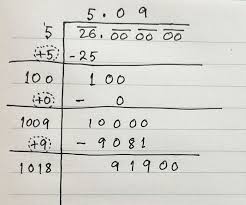 5.09
5 26.00 00 00
+5 -25
100 100
+0 - 0
1009 10000
+9 - 9081
1018 91900